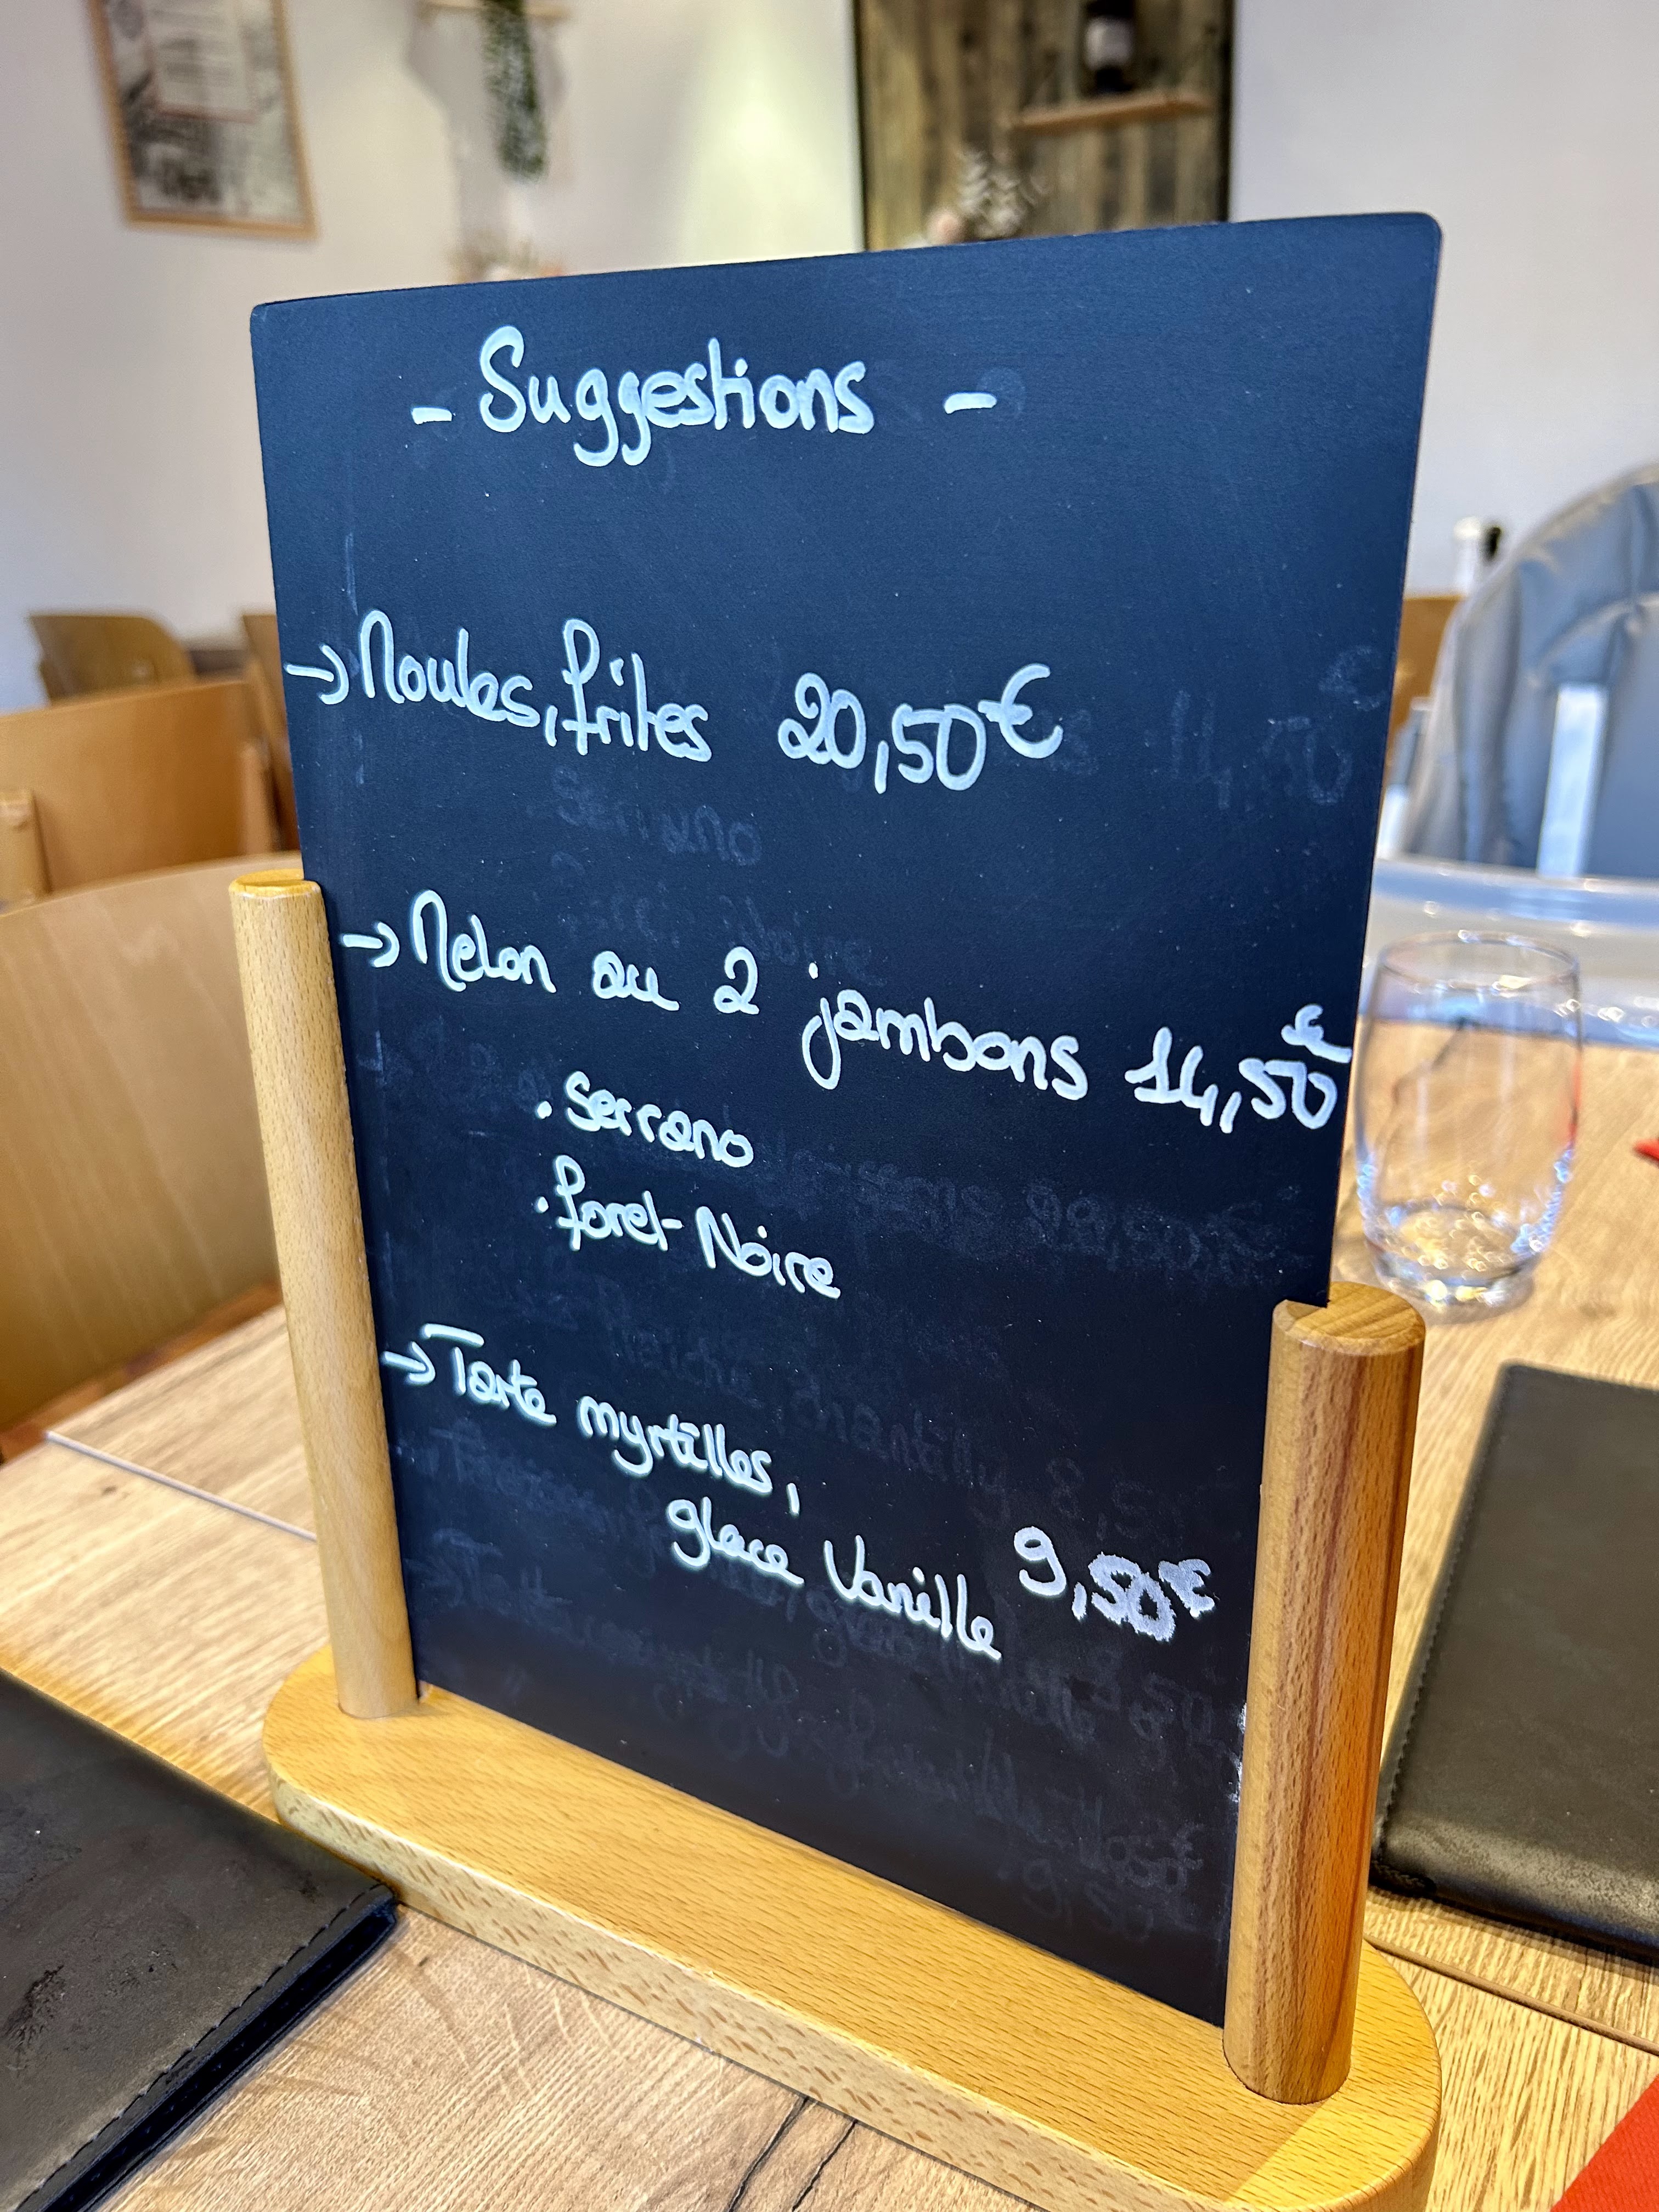 - Suggestions -
→ Moules, frites 20,50€
→ Melon au 2 jambons 14,50€
. Serrano
. foret-Noire
→ Tarte myrtilles,
glace Vanille 9,50€